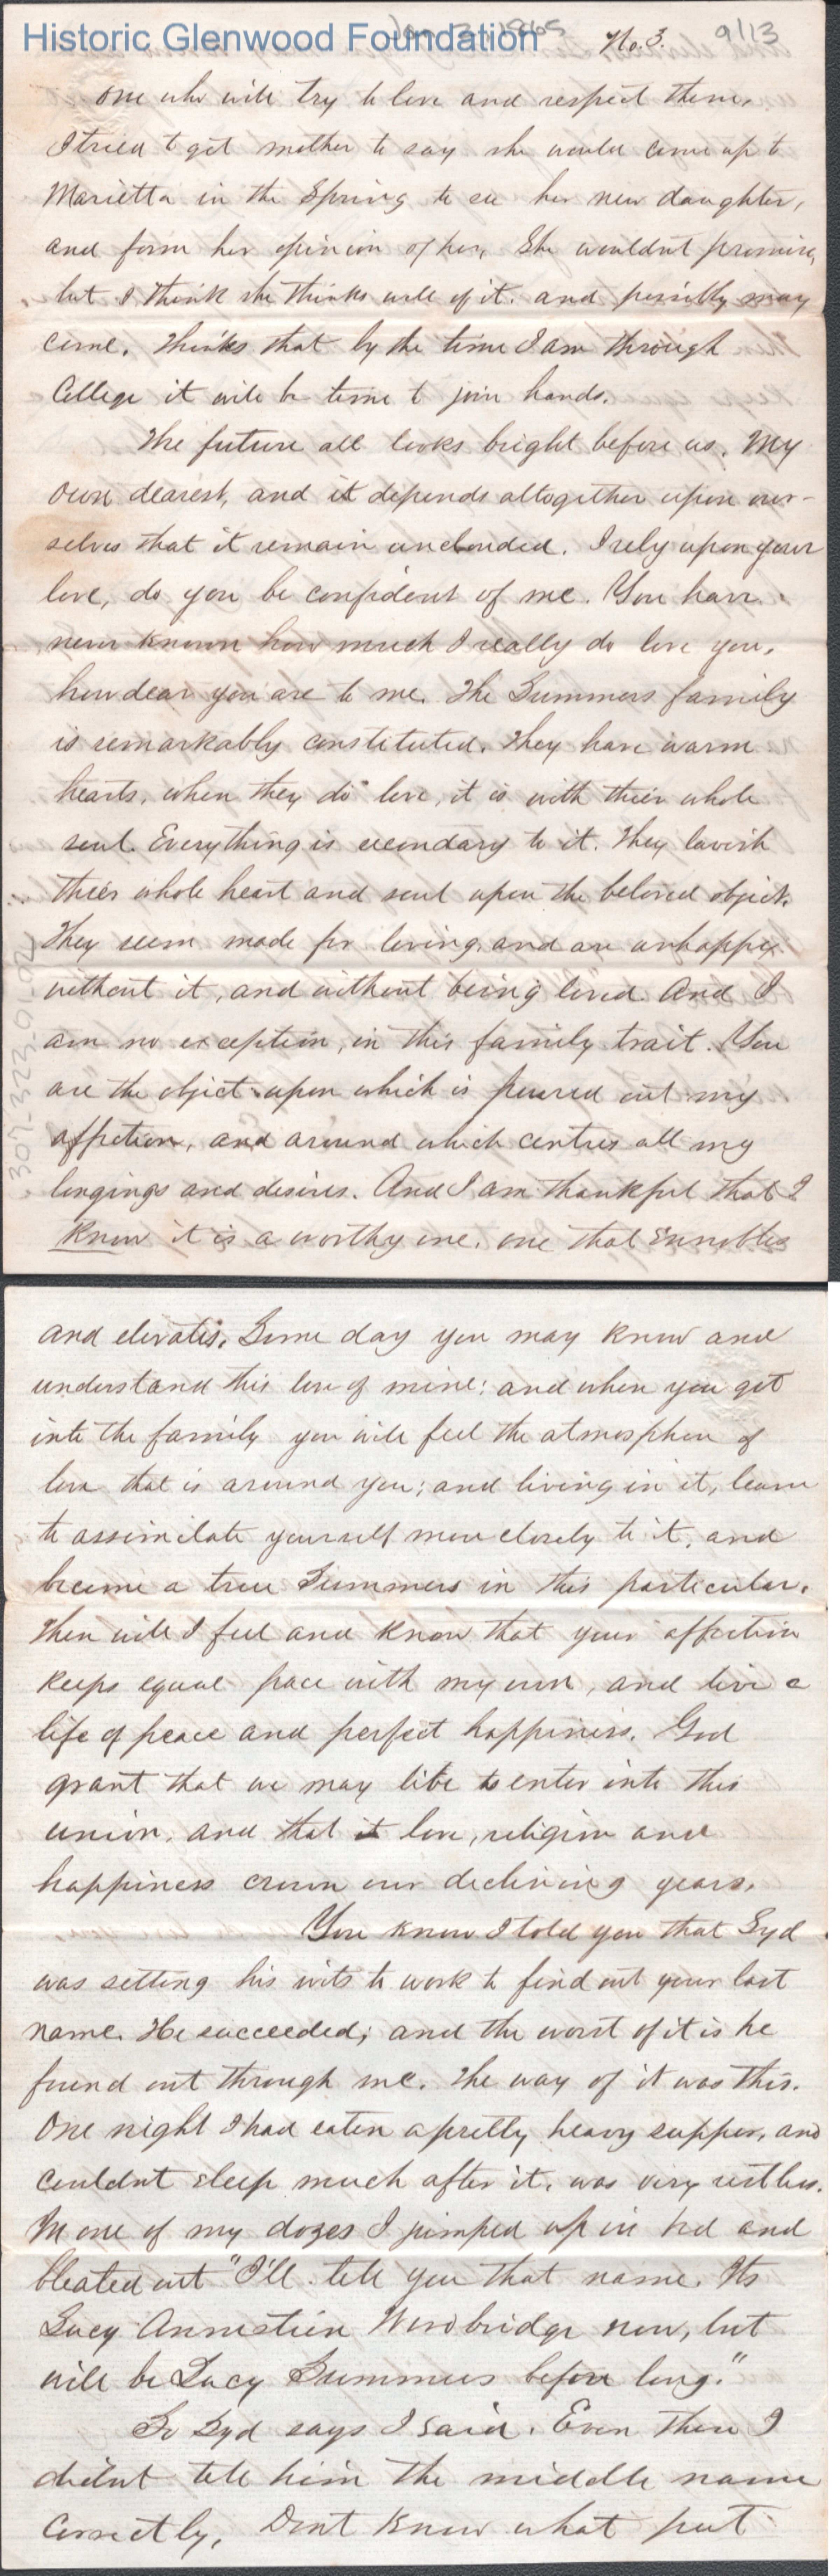 Historic Glenwood Foundation
Jan 3, 1865 No. 3. 9/13
one who will try to love and respect them.
I tried to get mother to say she would come up to
Marietta in the Spring to see her new daughter,
and form her opinion of her. She wouldnt promise,
but I think she thinks well of it. and possibly may
come. Thinks that by the time I am through
College it will be time to join hands.
The future all looks bright before us, My
own dearest, and it depends altogether upon our-
selves that it remain unclouded. I rely upon your
love, do you be confident of me. You have
never known how much I really do love you,
how dear you are to me. The Summers family
is remarkably constituted. They have warm
hearts, when they do love, it is with their whole
soul. Everything is secondary to it. They lavish
their whole heart and soul upon the beloved object.
They seem made for loving, and are unhappy
without it, and without being loved. And I
am no exception, in this family trait. You
are the object upon which is poured out my
affection, and around which centres all my
longings and desires. And I am thankful that I
know it is a worthy one. one that ennobles
307-323-01-02
and elevates. Some day you may know and
understand this love of mine: and when you get
into the family you will feel the atmosphere of
love that is around you; and living in it, learn
to assimilate yourself more closely to it, and
become a true Summers in this particular.
Then will I feel and know that your affection
keeps equal pace with my own, and live a
life of peace and perfect happiness. God
grant that we may live to enter into this
union, and that it love, religion and
happiness crown our declining years.
You know I told you that Syd
was setting his wits to work to find out your last
name. He succeeded; and the worst of it is he
found out through me. The way of it was this.
One night I had eaten a pretty heavy supper, and
couldnt sleep much after it, was very restless.
In one of my dozes I jumped up in bed and
bleated out "I'll tell you that name. Its
Lucy Woodbridge now, but
will be Lucy Summers before long."
So Syd says I said. Even then I
didnt tell him the middle name
correctly. Dont know what put